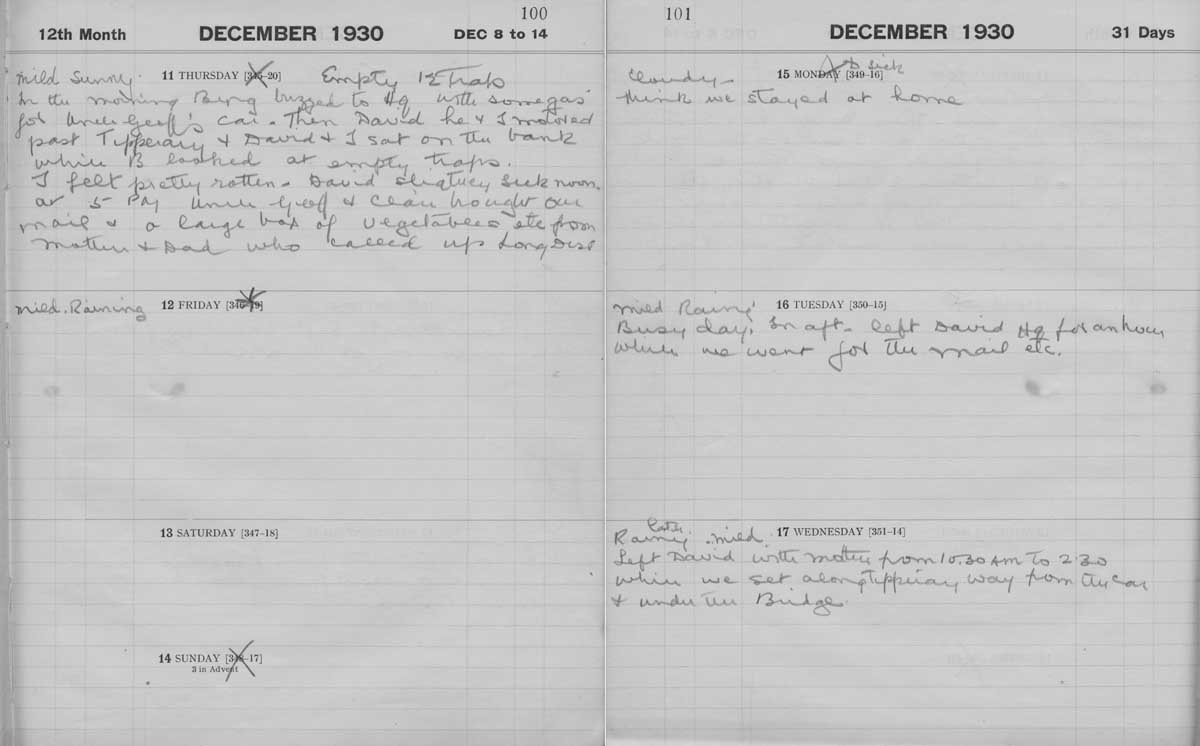 100
12th Month DECEMBER 1930 DEC 8 to 14
11 THURSDAY [345-20]
Mild Sunny. Empty 12 Traps
In the morning Bing buzzed to Hq with some gas
for Uncle Geoff's car. Then David he & I motored
past Tipperary & David & I sat on the bank
while B looked at empty traps.
I felt pretty rotten. David slightly sick noon.
at 5 Uncle Geoff & brought our
mail & a large box of vegetables etc from
Mother & Dad who called up Long Dist
12 FRIDAY [346-19]
Mild. Raining
13 SATURDAY [347-18]
14 SUNDAY [348-17]
3 in Advent
101
DECEMBER 1930 31 Days
15 MONDAY [349-16]
D sick
Cloudy
think we stayed at home
16 TUESDAY [350-15]
Mild Rainy
Busy day. In aft. left David Hq for an hour
while we went for the mail etc.
17 WEDNESDAY [351-14]
later
Rainy. mild.
Left David with mother from 10.30 AM To 2.30
while we set along Tipperary way from the car
& under the Bridge.